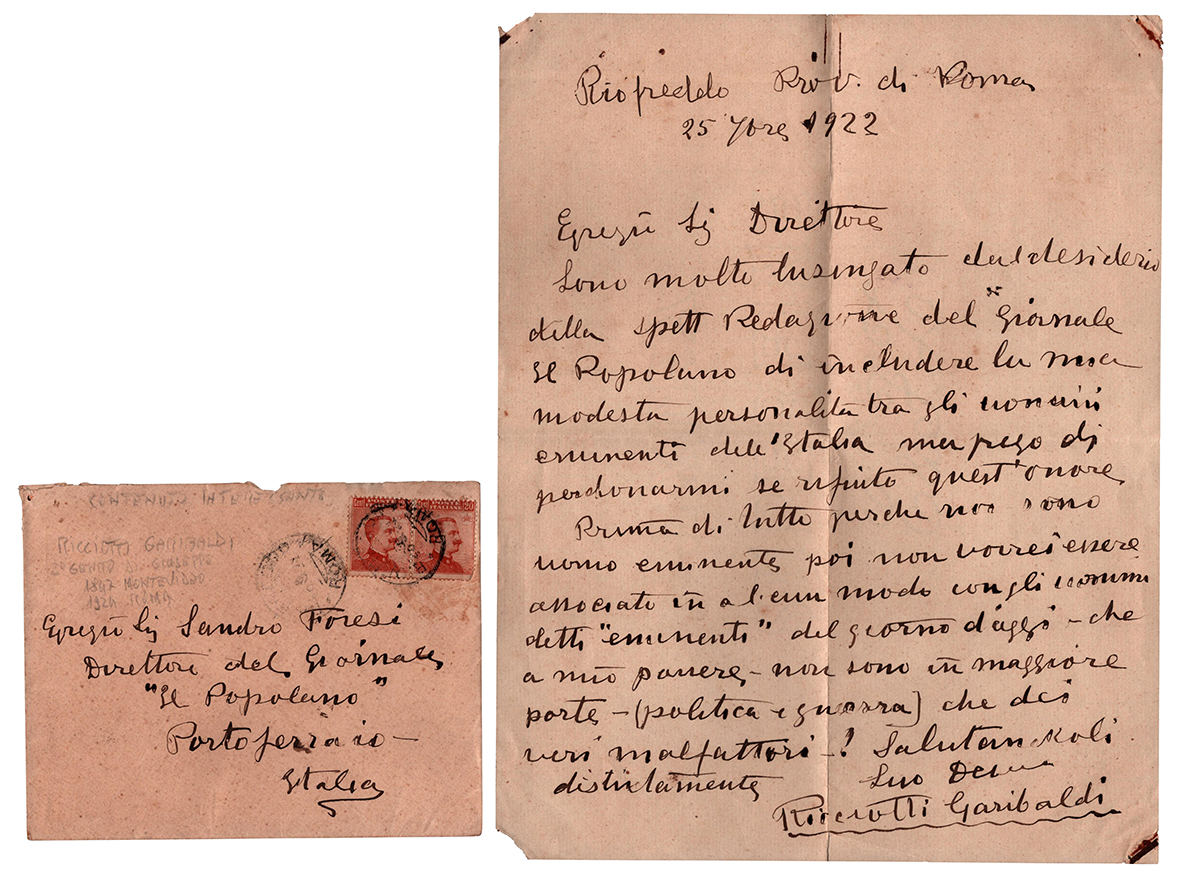 Riofreddo Prov. di Roma
25 7bre 1922
Egregio Sig Direttore
Sono molto lusingato dal desiderio
della spett Redazione del "Giornale
Il Popolano di includere la mia
modesta personalita tra gli uomini
eminenti dell'Italia ma prego di
perdonarmi se rifiuto quest'onore
Prima di tutto perche non sono
uomo eminente poi non vorrei essere
associato in alcun modo con gli uomini
detti "eminenti" del giorno d'aggi - che
a mio parere - non sono in maggiore
parte - (politica e guerra) che dei
veri malfattori -! Salutandoli
distintamente Suo
Ricciotti Garibaldi
CONTENUTO INTERESSANTE
RICCIOTTI GARIBALDI
2° GENITO DI GIUSEPPE
1847 MONTEVIDEO
1924 ROMA
ROMA
Egregio Sig Sandro Foresi
Direttore del Giornale
"Il Popolano"
Portoferraio -
Italia